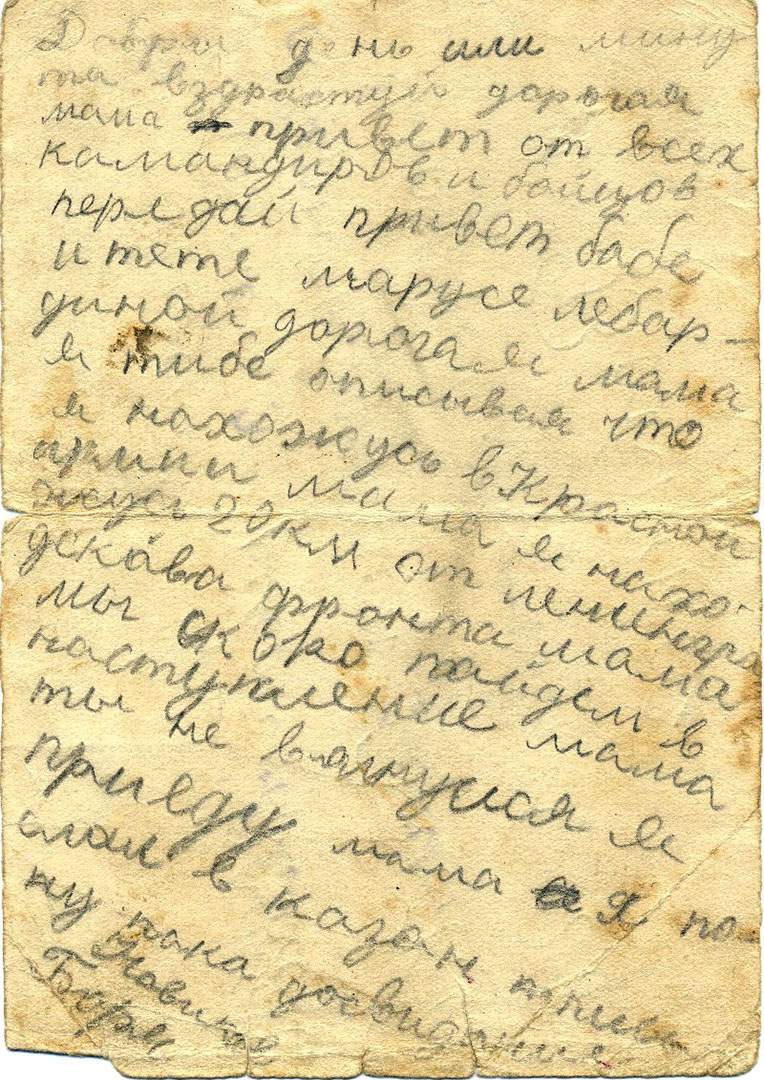 Добрый день или мину
та вздраствуй дорогая
мама привет от всех
камандиров и бойцов
передай привет бабе
и тете марусе лебар-
диной дорогая мама
я тибе описывая что
я нахожусь в Красной
армии мама я нахо-
жусь 20 км от ленингра
дскава фронта мама
мы скоро пайдем в
наступление мама
ты не валнуися я
приеду мама я по-
слал в казан
ну пока досвидание
Новиков
Боря